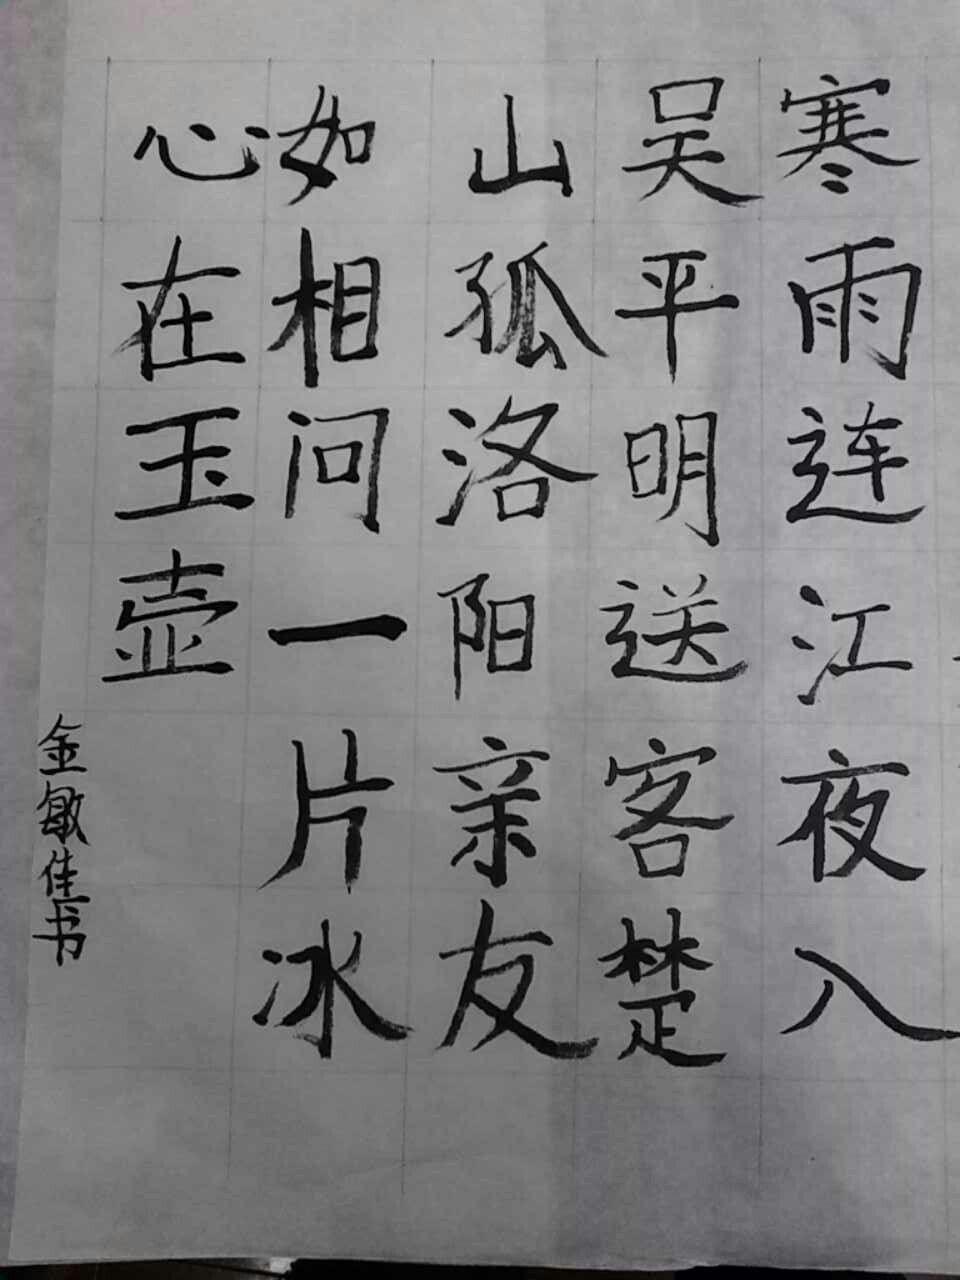 寒雨连江夜入
吴平明送客楚
山孤洛阳亲友
如相问一片冰
心在玉壶
金敏佳书